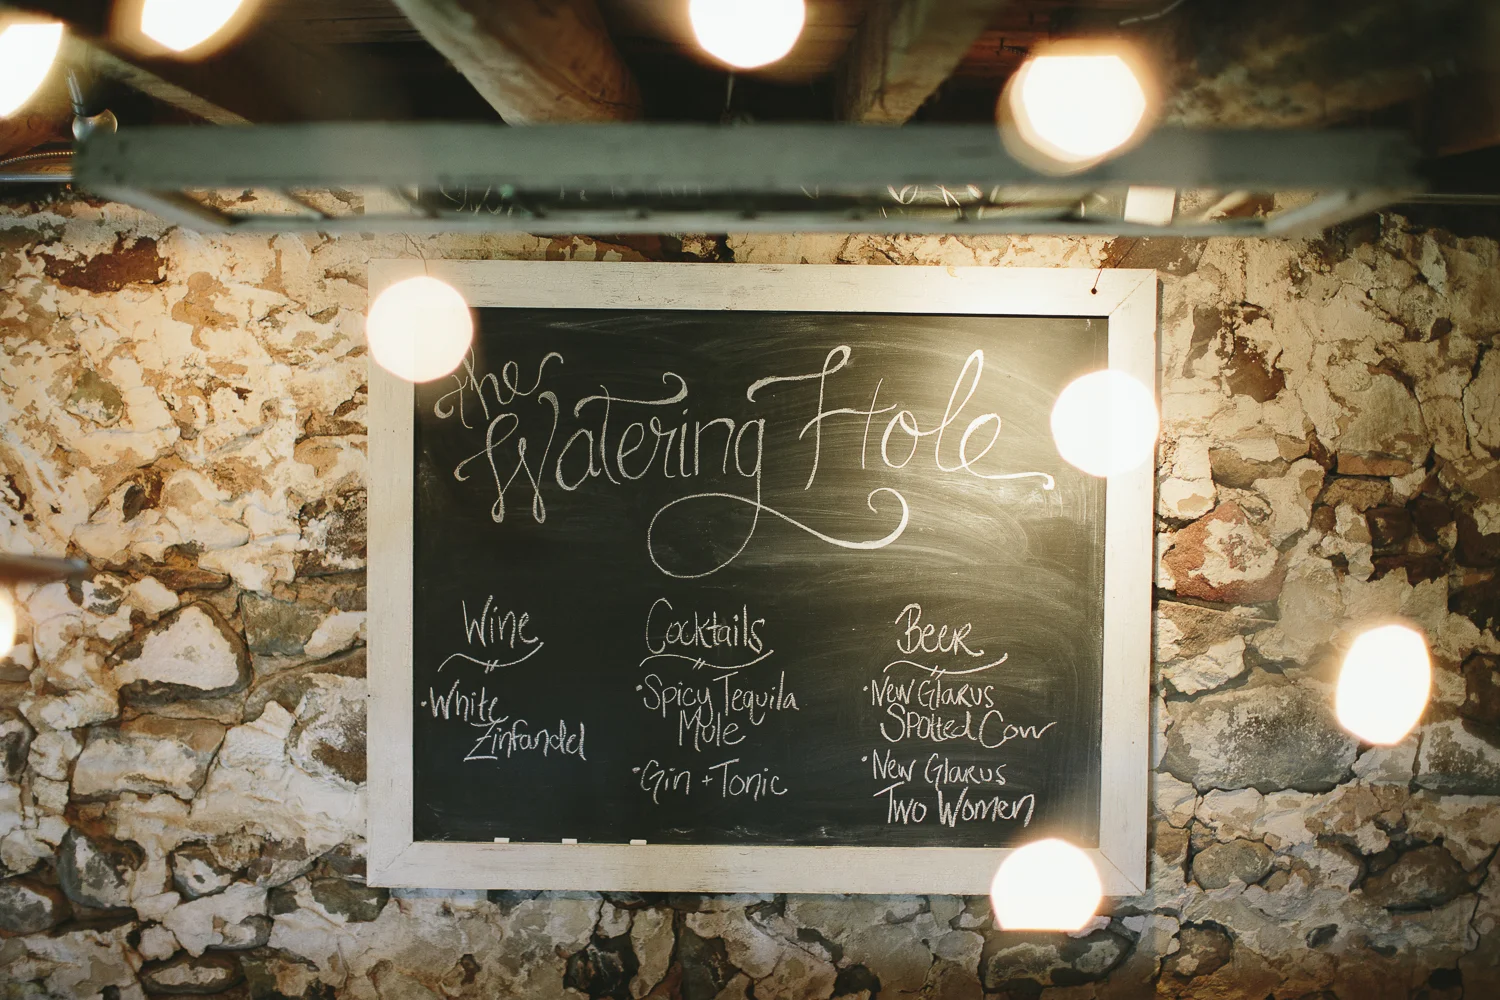 the
Watering Hole
Wine
·White
Zinfandel
Cocktails
·Spicy Tequila
Mule
·Gin + Tonic
Beer
·New Glarus
Spotted Cow
·New Glarus
Two Women